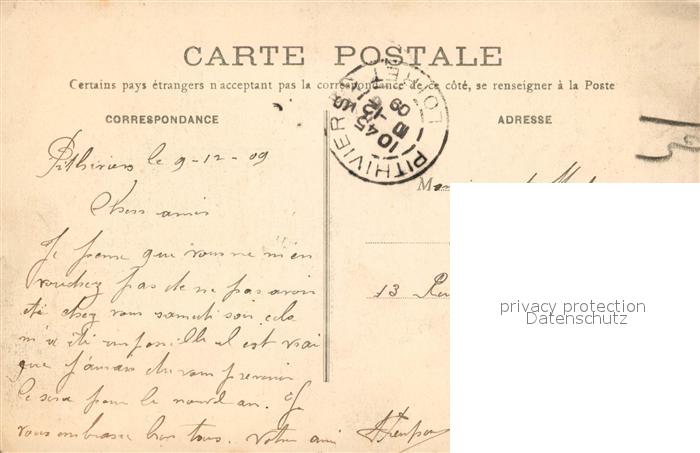 CARTE POSTALE
Certains pays étrangers n'acceptant pas la correspondance de ce côté, se renseigner à la Poste
CORRESPONDANCE
ADRESSE
PITHIVIERS
LOIRET
10 45
9 -12
09
Pithiviers le 9-12-09
Chers amis
Je pense que vous ne m'en
voudrez pas de ne pas avoir
été chez vous samedi soir cela
m'a été impossible il est vrai
que j'aurais du vous prevenir
ce sera pour le nouvel an. Je
vous embrasse bien tous. Votre ami
13 Ru
privacy protection
Datenschutz